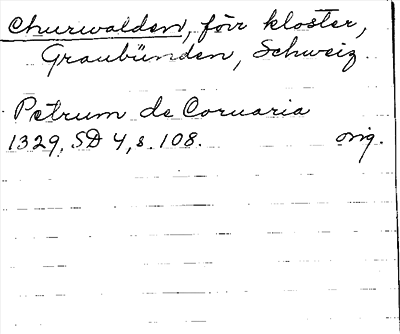 Churwalden, förr kloster,
Graubünden, Schweiz
Petrum de Coruaria
1329, SD 4, s. 108. orig.